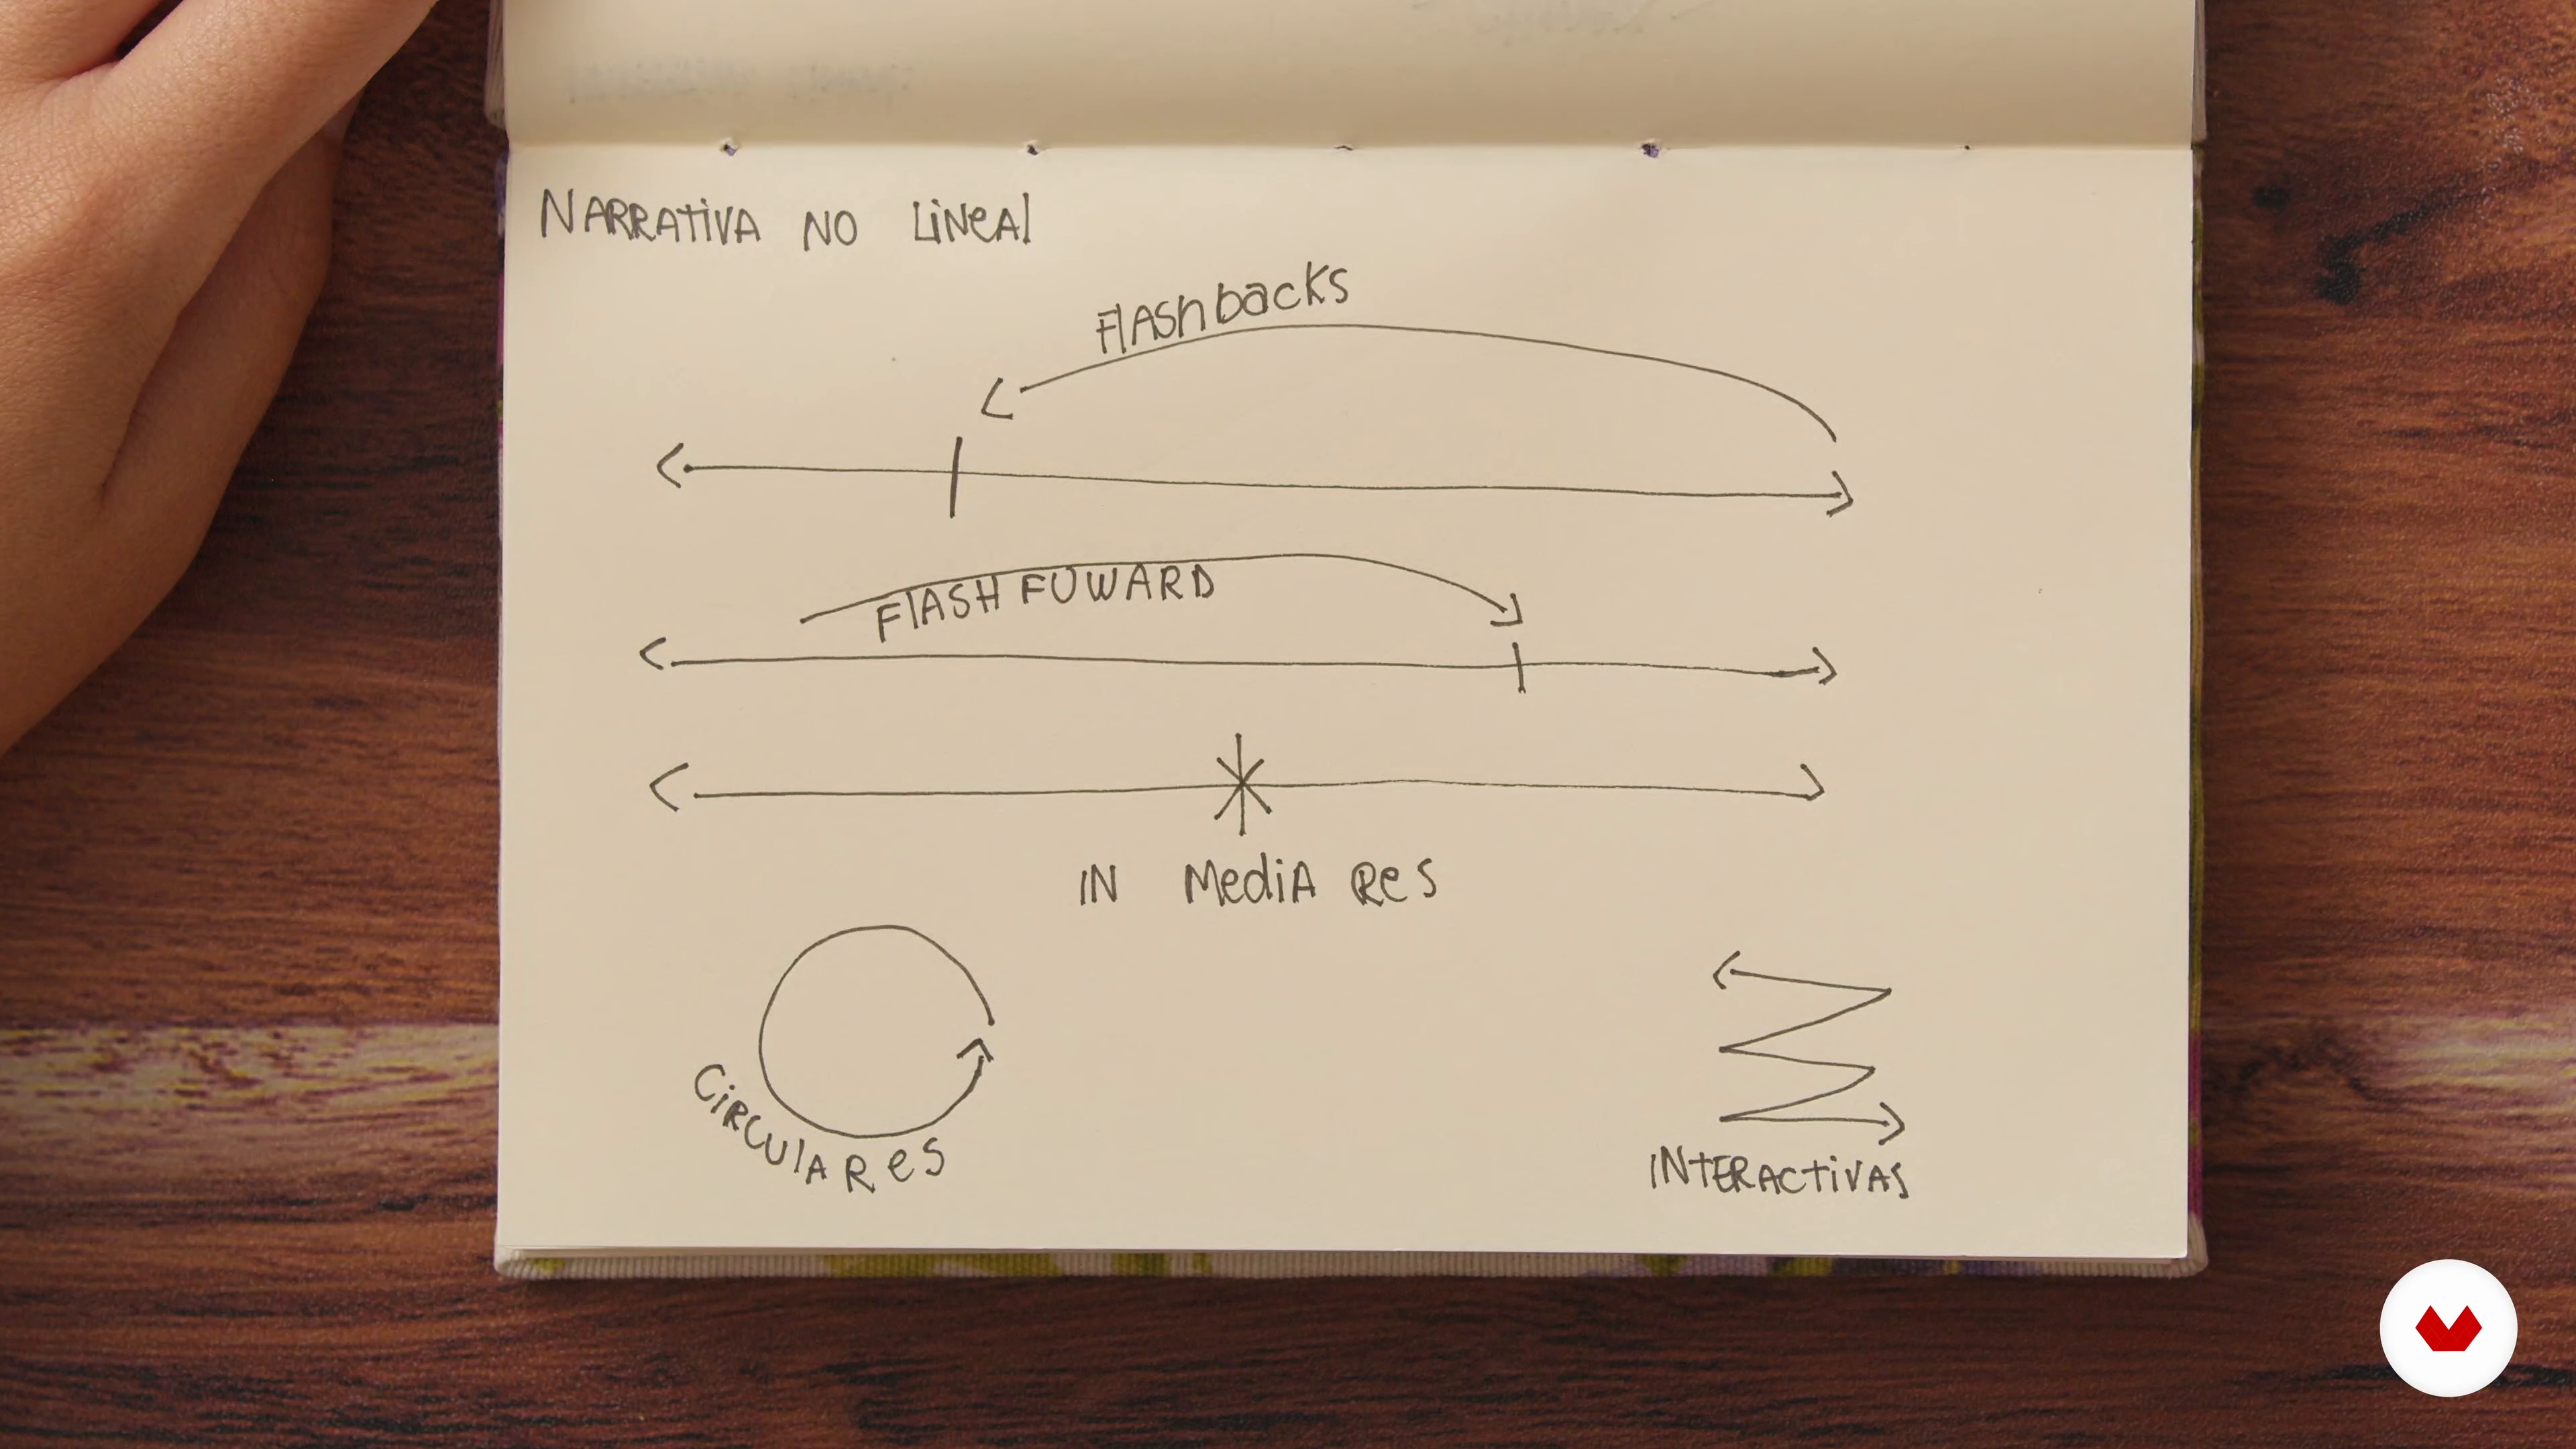 NARRATIVA NO LINEAL
FLASHbACKS
FLASH FUWARD
IN MEDIA RES
CIRCULARES
INTERACTIVAS